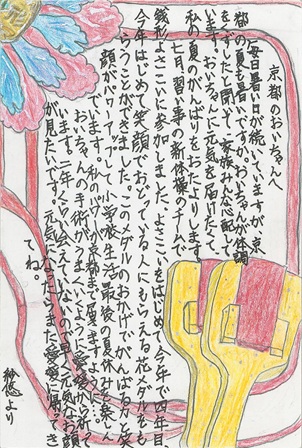 京都のおいちゃんへ
毎日暑い日が続いていますが、京
都の夏も暑いですか。おいちゃんが体調
をくずしたと聞いて、家族みんな心配して
います。おいちゃんに元気を届けたくて、
私の夏のがんばりをおたよりします。
七月、習い事の新体操のチームで
銭形よさこいに参加しました。よさこいをはじめ、今年で四年目。
今年はじめて笑顔でおどっている人にもらえる花メダルをも
らうことができました。このメダルのおかげで、がんばる力と笑
顔がパワーアップして、小学校生活最後の夏休みを楽しん
でいます。私のパワー京都まで届きますように…。
おいちゃんの手術がうまくいくように愛媛から祈って
います。二年くらい会えていないので早く元気なお顔
が見たいです。元気になったらまた愛媛に帰ってき
てね。
より